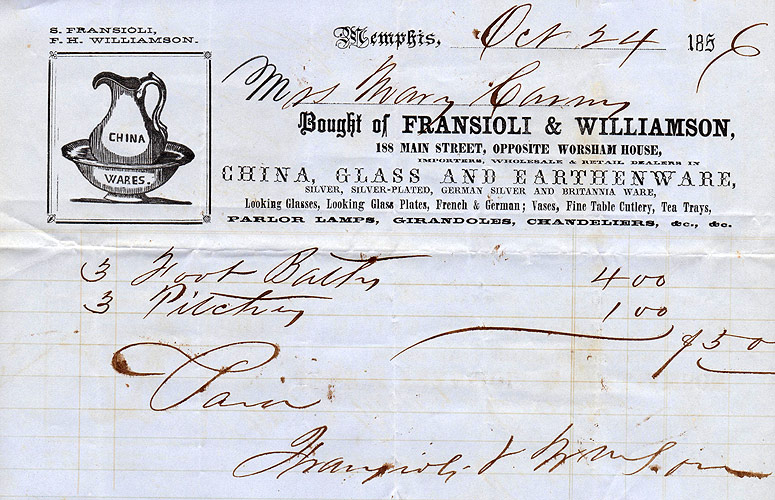 S. FRANSIOLI,
F. H. WILLIAMSON.
Memphis, Oct 24 1856
CHINA
WARES.
Mrs Mary
Bought of FRANSIOLI & WILLIAMSON,
188 MAIN STREET, OPPOSITE WORSHAM HOUSE,
IMPORTERS, WHOLESALE & RETAIL DEALERS IN
CHINA, GLASS AND EARTHENWARE,
SILVER, SILVER-PLATED, GERMAN SILVER AND BRITANNIA WARE,
Looking Glasses, Looking Glass Plates, French & German; Vases, Fine Table Cutlery, Tea Trays,
PARLOR LAMPS, GIRANDOLES, CHANDELIERS, &c., &c.
3 Foot Baths 4 00
3 Pitchers 1 00
$5 0
Paid
Fransioli & Wmson